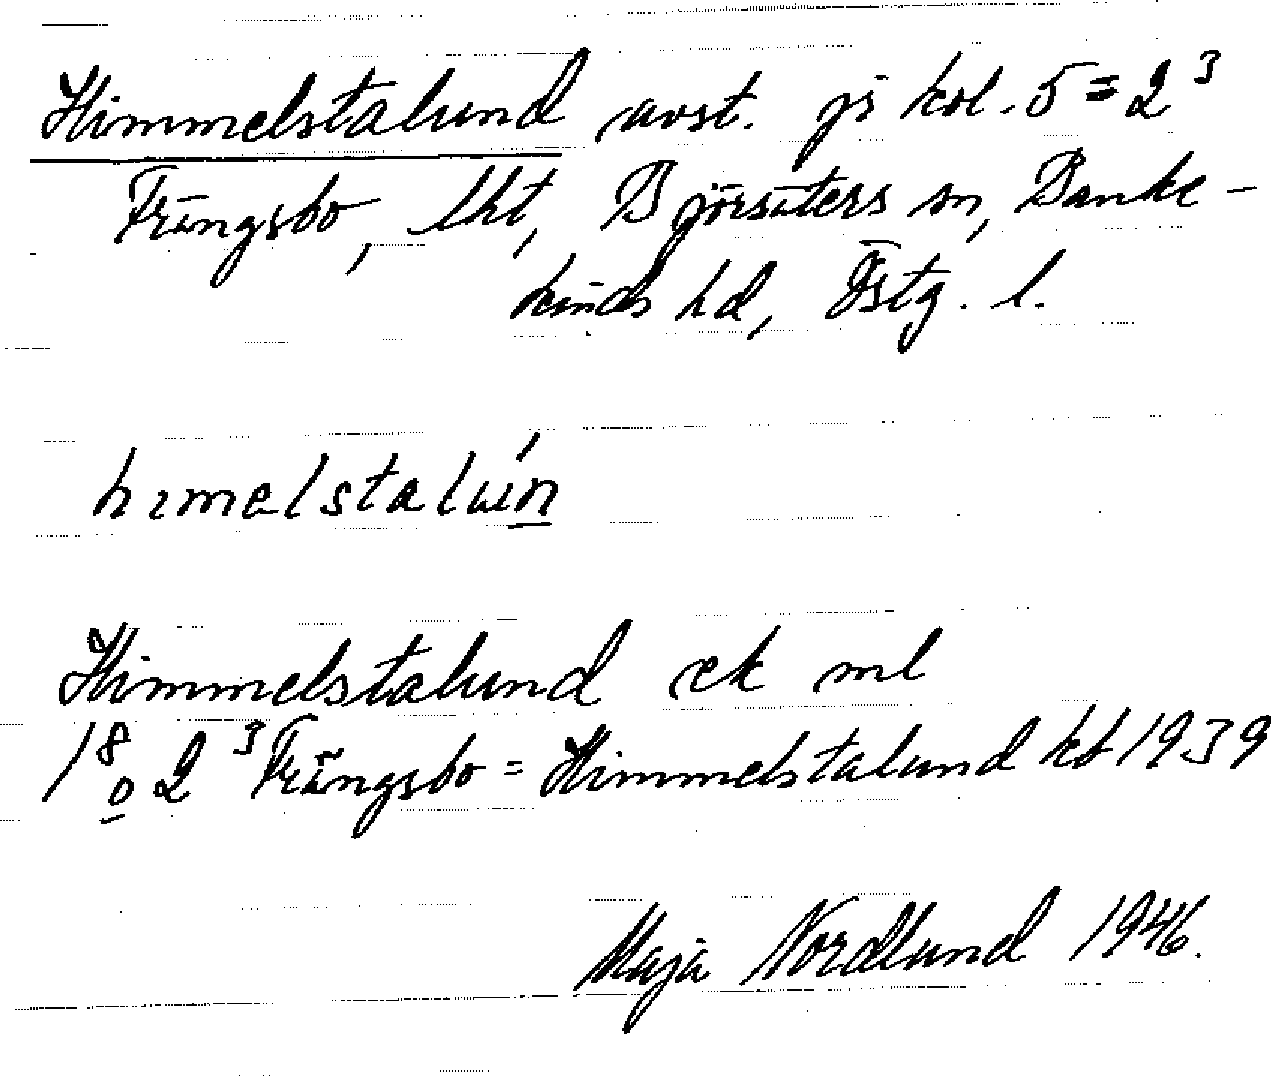 Himmelstalund avst. jr kol. 5 = 2³
Frängsbo, lht, Björsäters sn, Banke-
kinds hd, Östg. l.
himelstalún
Himmelstalund ek ml
1⁸₀ 2³ Frängsbo = Himmelstalund kb 1939
Maja Nordlund 1946.